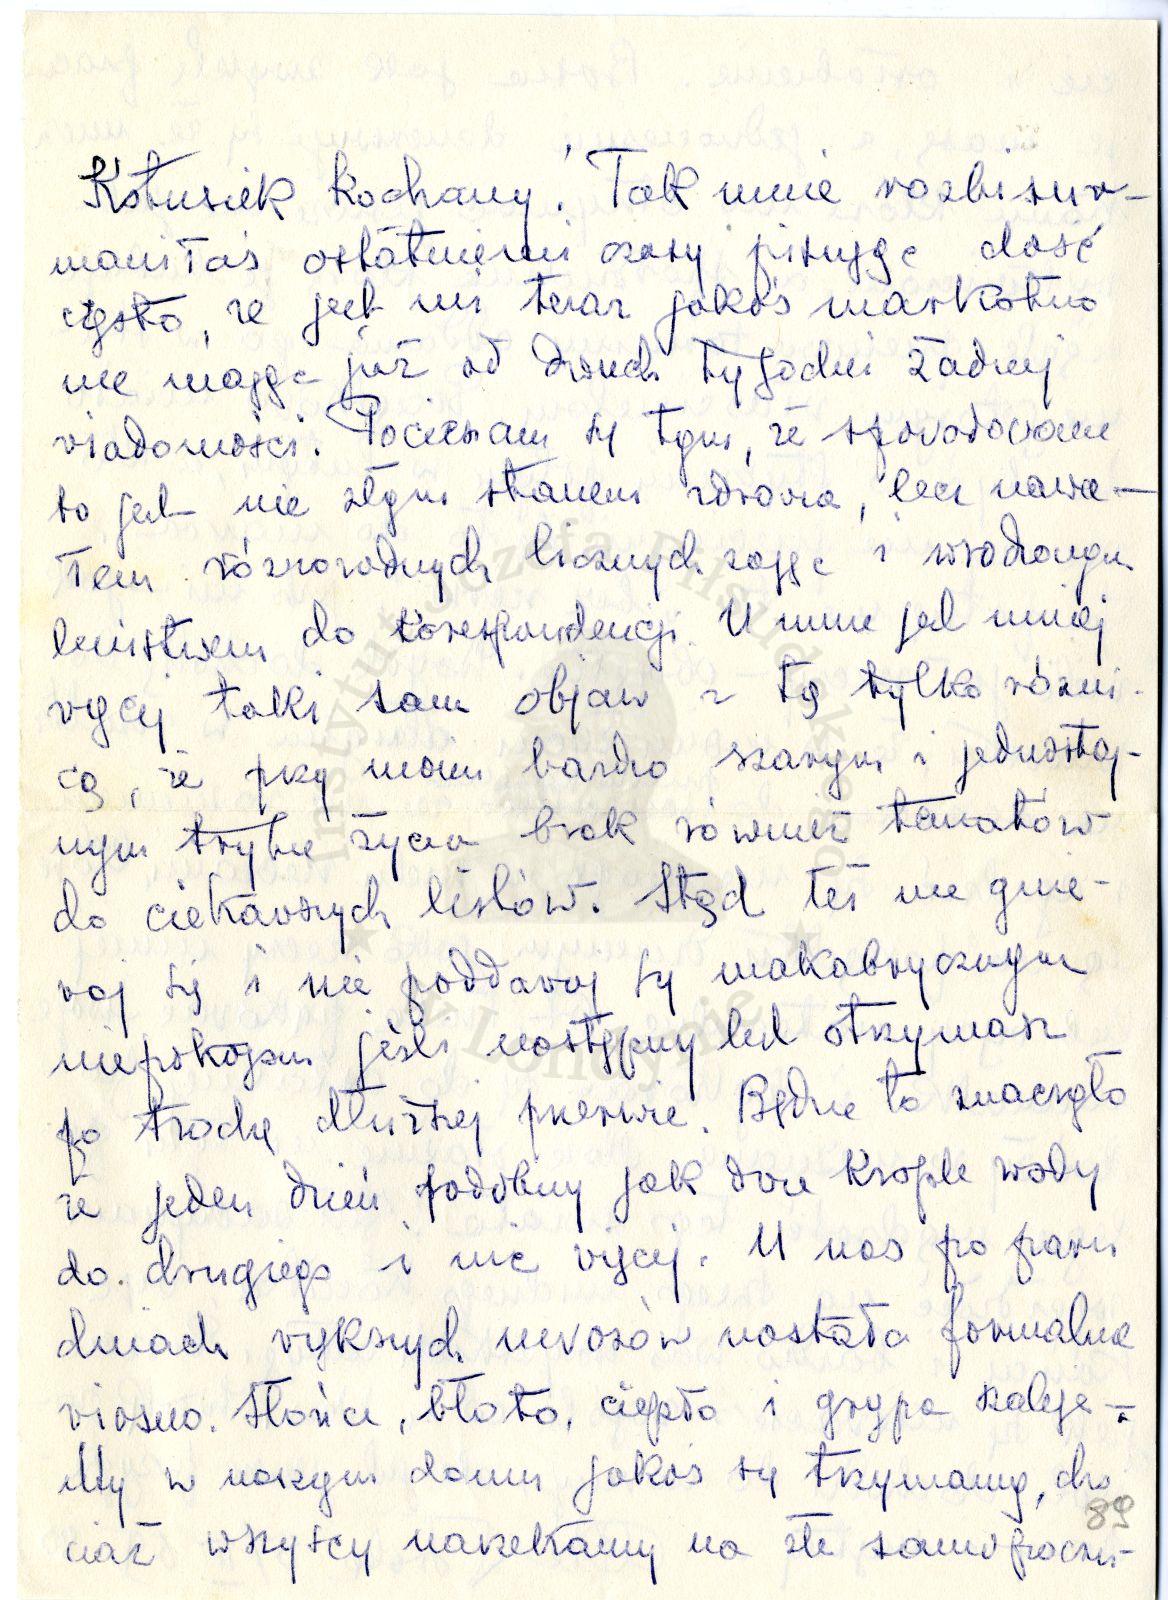 Kotusiek kochany! Tak mnie rozbisur-
maniłaś ostatniemi czasy pisując dość
często, że jest mi teraz jakoś markotno
nie mając już od dwuch tygodni żadnej
wiadomości. Pocieszam się tym, że spowodowane
to jest nie złym stanem zdrowia, lecz nawa-
łem różnorodnych licznych zajęć i wrodzonym
lenistwem do korespondencji. U mnie jest mniej
więcej taki sam objaw z tą tylko różni-
cą, że przy moim bardzo szarym i jednostaj-
nym trybie życia brak również tematów
do ciekawszych listów. Stąd też nie gnie-
waj się i nie poddawaj się makabrycznym
niepokojom jeśli następny list otrzymasz
po trochę dłuższej przerwie. Będzie to znaczyło
że jeden dzień podobny jak dwie krople wody
do drugiego i nic więcej. U nas po paru
dniach większych mrozów nastała formalna
wiosna. Słońce, błoto, ciepło i grypa szaleje.
My w naszym domu jakoś się trzymamy, cho
ciaż wszyscy narzekamy na złe samopoczu-
89
Instytut Józefa Piłsudskiego
w Londynie